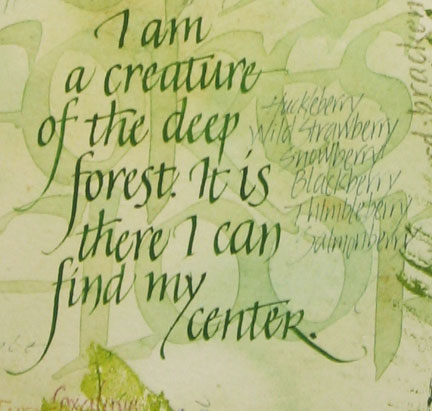 I am
a creature
of the deep
forest. It is
there I can
find my
center.
Huckleberry
Wild Strawberry
Snowberry
Blackberry
Thimbleberry
Salmonberry
bracken